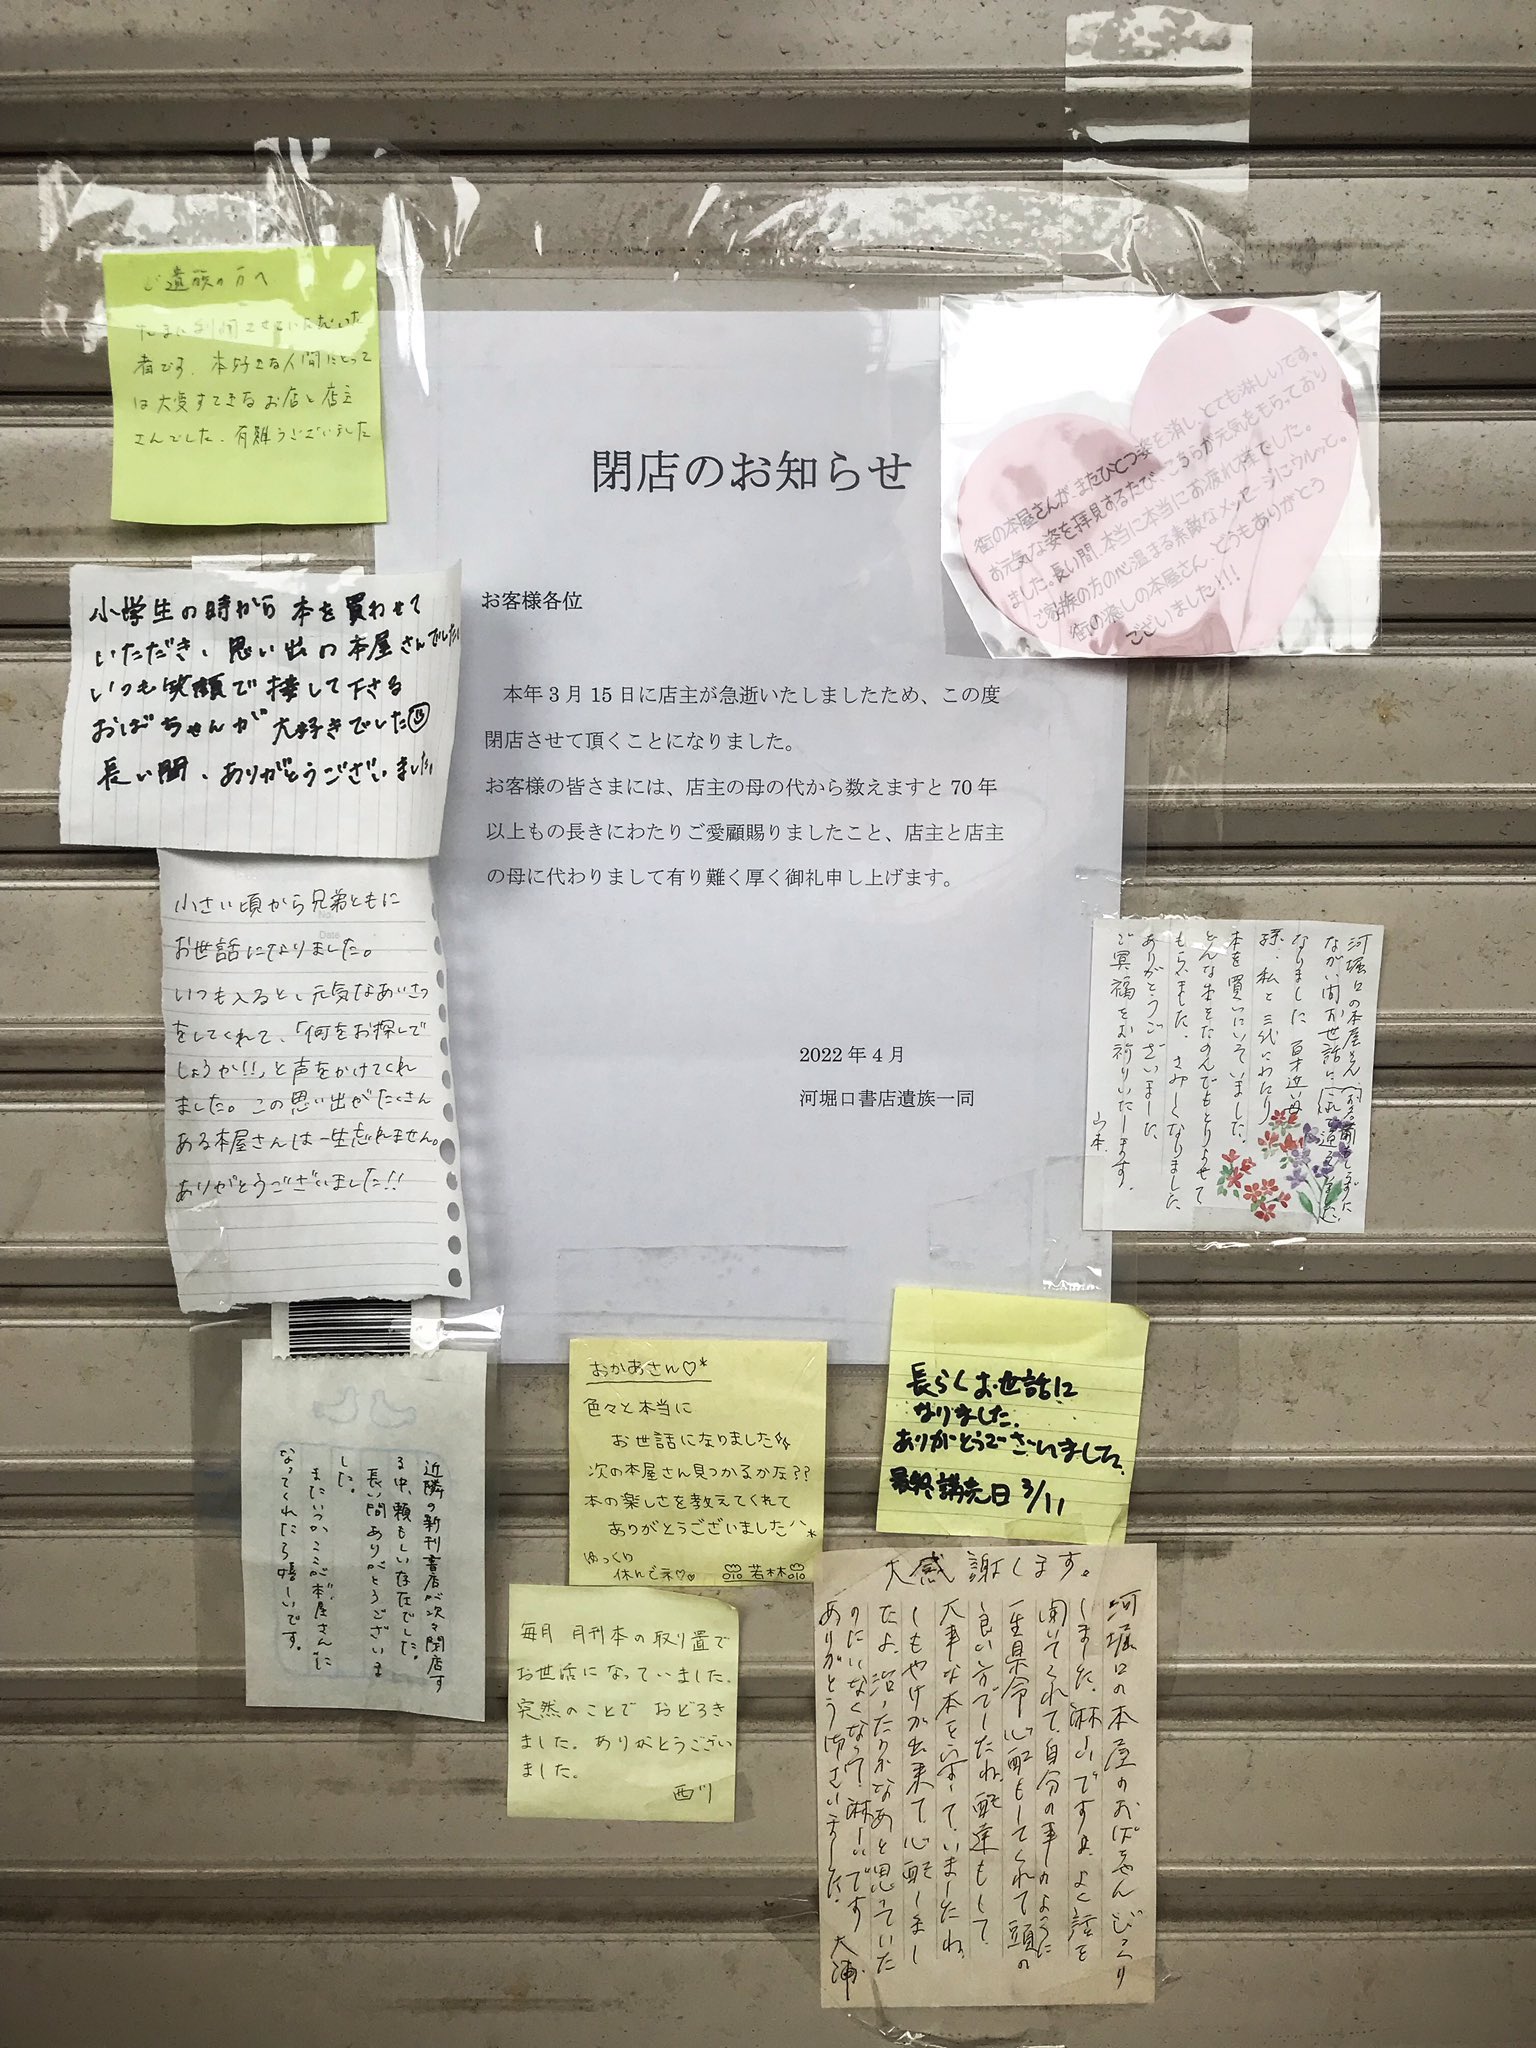 閉店のお知らせ
お客様各位
本年3月15日に店主が急逝いたしましたため、この度
閉店させて頂くことになりました。
お客様の皆さまには、店主の母の代から数えますと70年
以上もの長きにわたりご愛顧賜りましたこと、店主と店主
の母に代わりまして有り難く厚く御礼申し上げます。
2022年4月
河堀口書店遺族一同
ご遺族の方へ
たまに利用させていただいた
者です。本好きな人間にとって
は大変すてきなお店と店主
さんでした。有難うございました
街の本屋さんが、またひとつ姿を消し、とても淋しいです。
お元気な姿を拝見するたび、こちらが元気をもらっており
ました。長い間、本当に本当にお疲れ様でした。
ご家族の方の心温まる素敵なメッセージにウルッと。
街の癒しの本屋さん、どうもありがとう
ございました!!!
小学生の時から本を買わせて
いただき、思い出の本屋さんでした
いつも笑顔で接して下さる
おばちゃんが大好きでした
長い間、ありがとうございました
小さい頃から兄弟ともに
No.
Date
お世話になりました。
いつも入ると、元気なあいさつ
をしてくれて、「何をお探しで
しょうか!!」と声をかけてくれ
ました。この思い出がたくさん
ある本屋さんは一生忘れません。
ありがとうございました!!
河堀口の本屋さん
ながい間お世話に
なりました 百才近い母
孫、私と三代にわたり
本を買いにいていました。
どんな本をたのんでもとりよせて
もらいました。さみしくなりました
ありがとうございました。
ご冥福をお祈りいたします。
山本
近隣の新刊書店が次々閉店す
る中、頼もしい存在でした。
長い間ありがとうございま
した。
またいつかここが本屋さんに
なってくれたら嬉しいです。
おかあさん♡*
色々と本当に
お世話になりました
次の本屋さん見つかるかな??
本の楽しさを教えてくれて
ありがとうございました^^*
ゆっくり
休んでネ♡♡
若林
長らくお世話に
なりました。
ありがとうございました。
最終講売日 3/11
毎月 月刊本の取り置で
お世話になっていました。
突然のことで おどろき
ました。ありがとうござい
ました。
西川
大感謝します。
河堀口の本屋のおばちゃんびっくり
しました。淋しいですよ、よく話を
聞いてくれて、自分の事のように
一生県命心配もしてくれて頭の
良い方でしたね。配達もして
大事な本を
しもやけが出来て心配しまし
たよ。治ったかなあと思っていた
のにいなくなって淋しいです
ありがとう御ざいました。
大浦